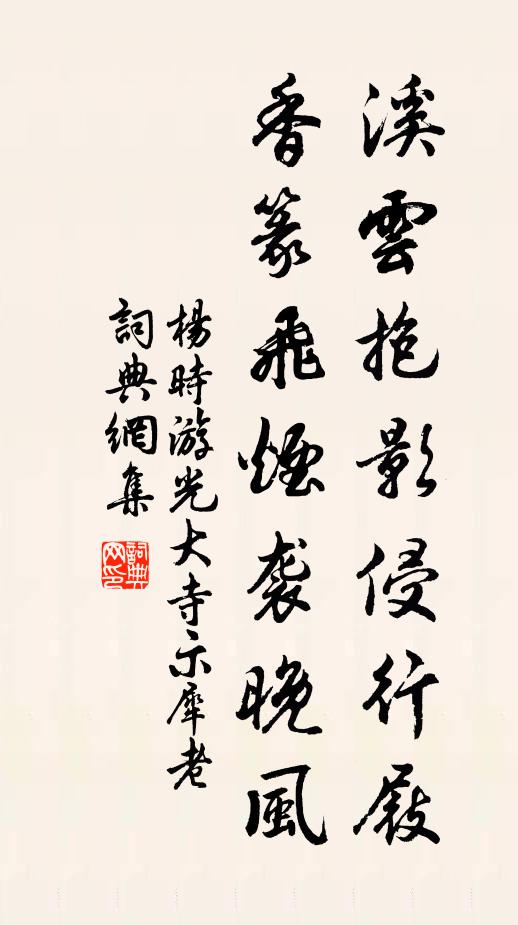 溪雲抱影侵行屐
香篆飛煙襲晚風
楊時游光大寺示犀老
詞典網集
詞典网印